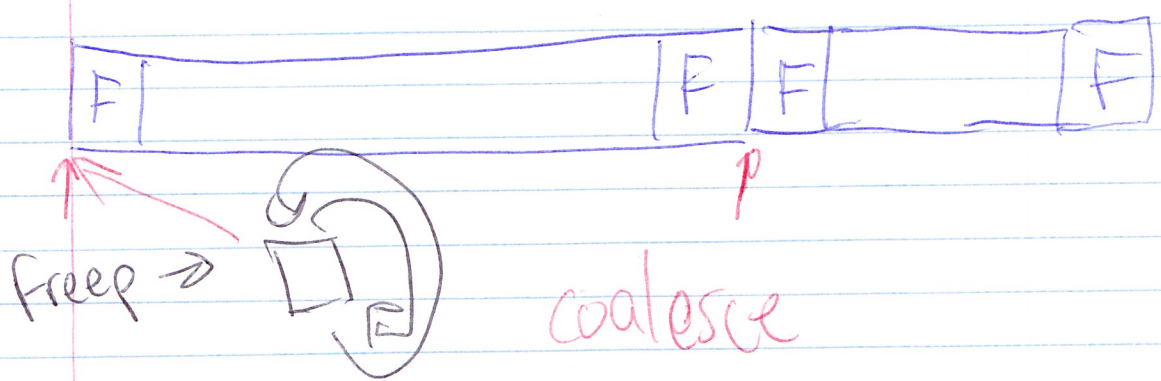 F F F F
p
freep
coalesce